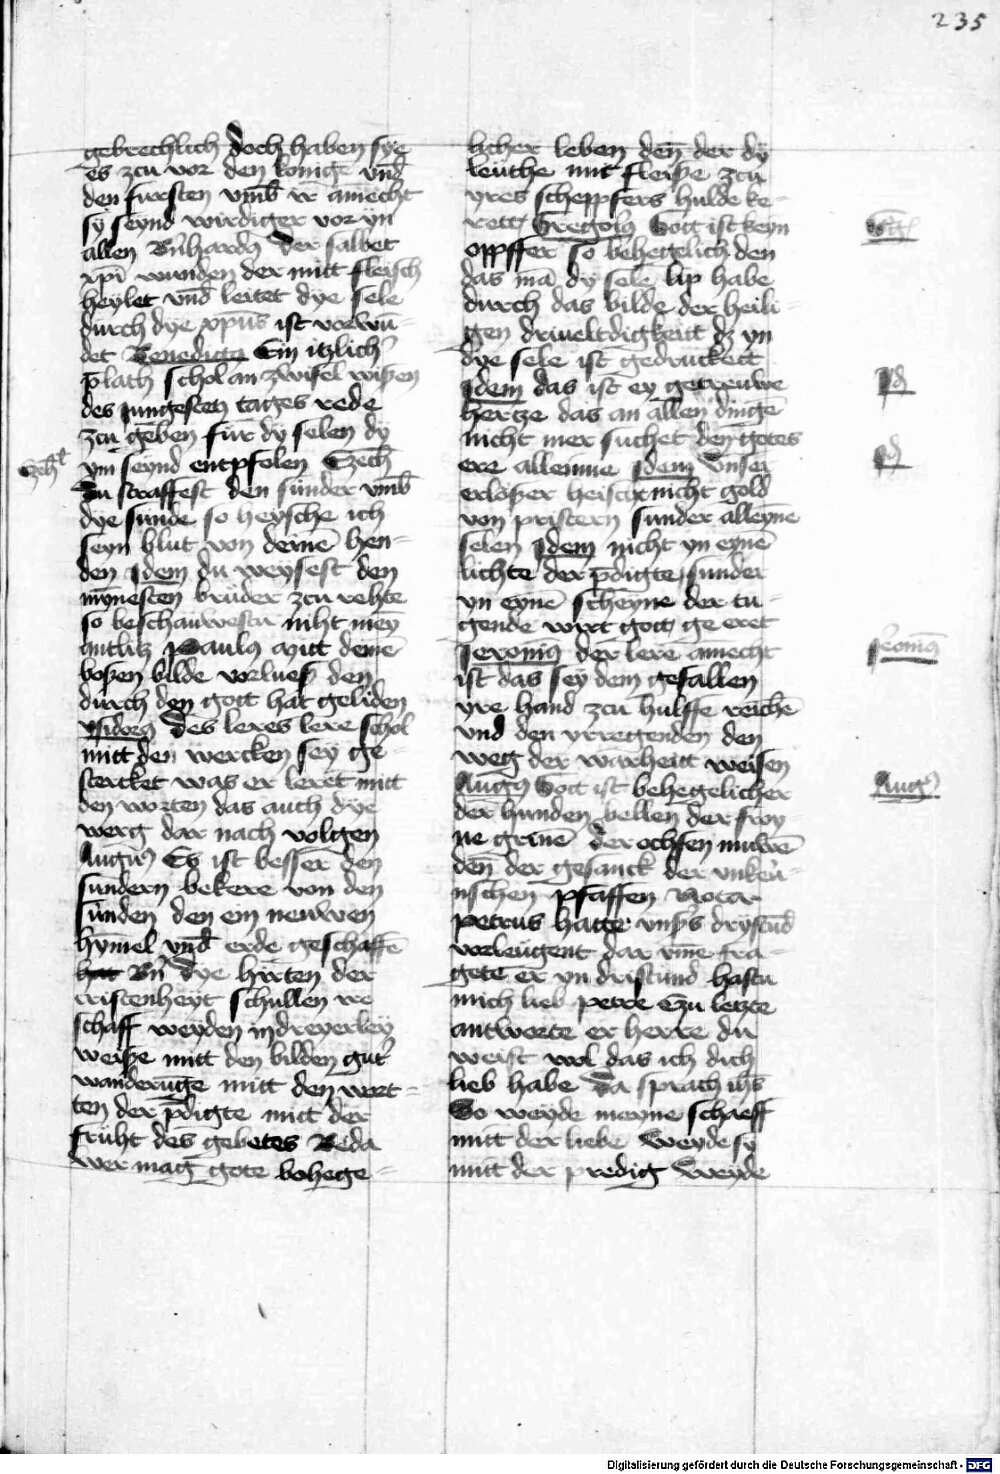 235
gebrechlich doch haben sye
es zcu vor den konigē vnd
den fursten vmb ir amecht
sy seynd wirdiger vor yn
allen Bn̄hardꝰ der salbet
xpī wunden der mitt fleisch
heylet vnd leitet dye sele
durch dye xpūs ist vorwū-
det Benedictꝰ Ein itzlichˀ
plath schol an zwifel wißen
des jungesten tages rede
zcu geben fur dy selen dy
ym seynd entpfolen Ezech
Du straffest den sunder vmb
dye sunde so heysche ich
seyn blut von deinē hen-
den Idem du weysest den
mynesten bruder zcu rehte
so beschauwestu niht mey
antlitz Paulꝰ Mitt deinē
boßen bilde vorlueß den
durch den gott hat geliden
ysidorꝰ Des leres lere schol
mitt den wercken sey ge-
stercket was er leret mitt
den worten das auch dye
werg dar nach volgen
Augꝰ Es ist besser den
sundern bekere von den
sunden den ein neuwen
hymel vnd erde geschaffē
Bn̄ dye hirten der
cristenheyt schullen ire
schaff weyden in dreyerley
weiße mitt den bilden gutˀ
wanderūge mitt den wort-
ten der p̄digte mitt der
fruht des gebetes Beda
wer mag gote behege-
licher leben den̄ der dy
leuthe mit fleiße zcu
yres scheppfers hulde ke-
rett Gregoꝰ Gott ist keyn
opffer so behegelich den
das mā dy sele lip habe
durch das bilde der heili-
gen driueltdigkeitt dz yn
dye sele ist gedruckett
Idem das ist ey getreuwe
hertze das an allen dingē
nicht mer suchet den gotes
ere alleinne Idem Vnser
erloßer heischt nicht gold
von pristern sunder alleyne
selen Idem nicht yn eynē
lichte der p̄digte sunder
yn eynē scheyne der tu-
gende wirt gott ge eret
Jeronimꝰ der lere amecht
ist das sey dem gefallen
yre hand zcu hulffe reichē
vnd den yrregenden den
weg der warheitt weisen
Augꝰ Gott ist behegelicher
der hunden bellen der swy-
ne grinē der ochsen muwē
den̄ der gesanck der vnkeu-
nschen pfaffen Notar
petrus hatte vnsˀs drystūd
vorleugent dar vm̄e fra-
gete er yn dristund hastu
mich lieb petre Czu letzte
antworte er herre du
weist wol das ich dich
lieb habe Da sprach ihs
So weyde meyne schaeff
mitt der liebe weyde sy
mitt der predig weyde
Ezech
Greg
Id
Id
Jeronimꝰ
Augꝰ
Digitalisierung gefördert durch die Deutsche Forschungsgemeinschaft - DFG